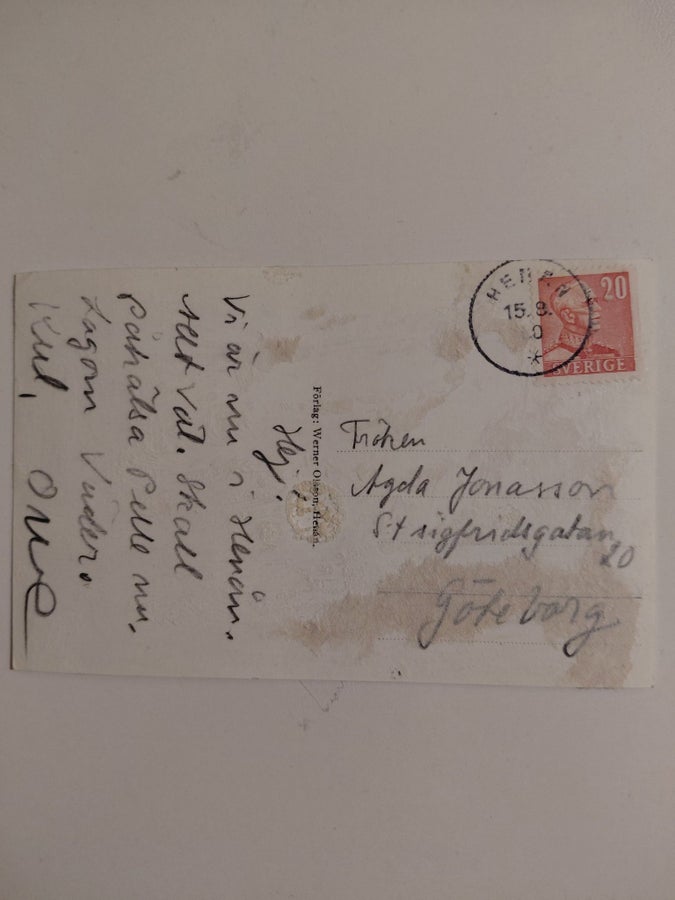 Hej!
Vi är nu i Henån.
Allt väl. Skall
påhälsa Pelle nu.
Lagom Väder.
Kul,
Förlag: Werner Olsson, Henån.
HENÅN
15.8.
20
SVERIGE
Fröken
Agda Jonasson
St sigfridsgatan
20
Göteborg